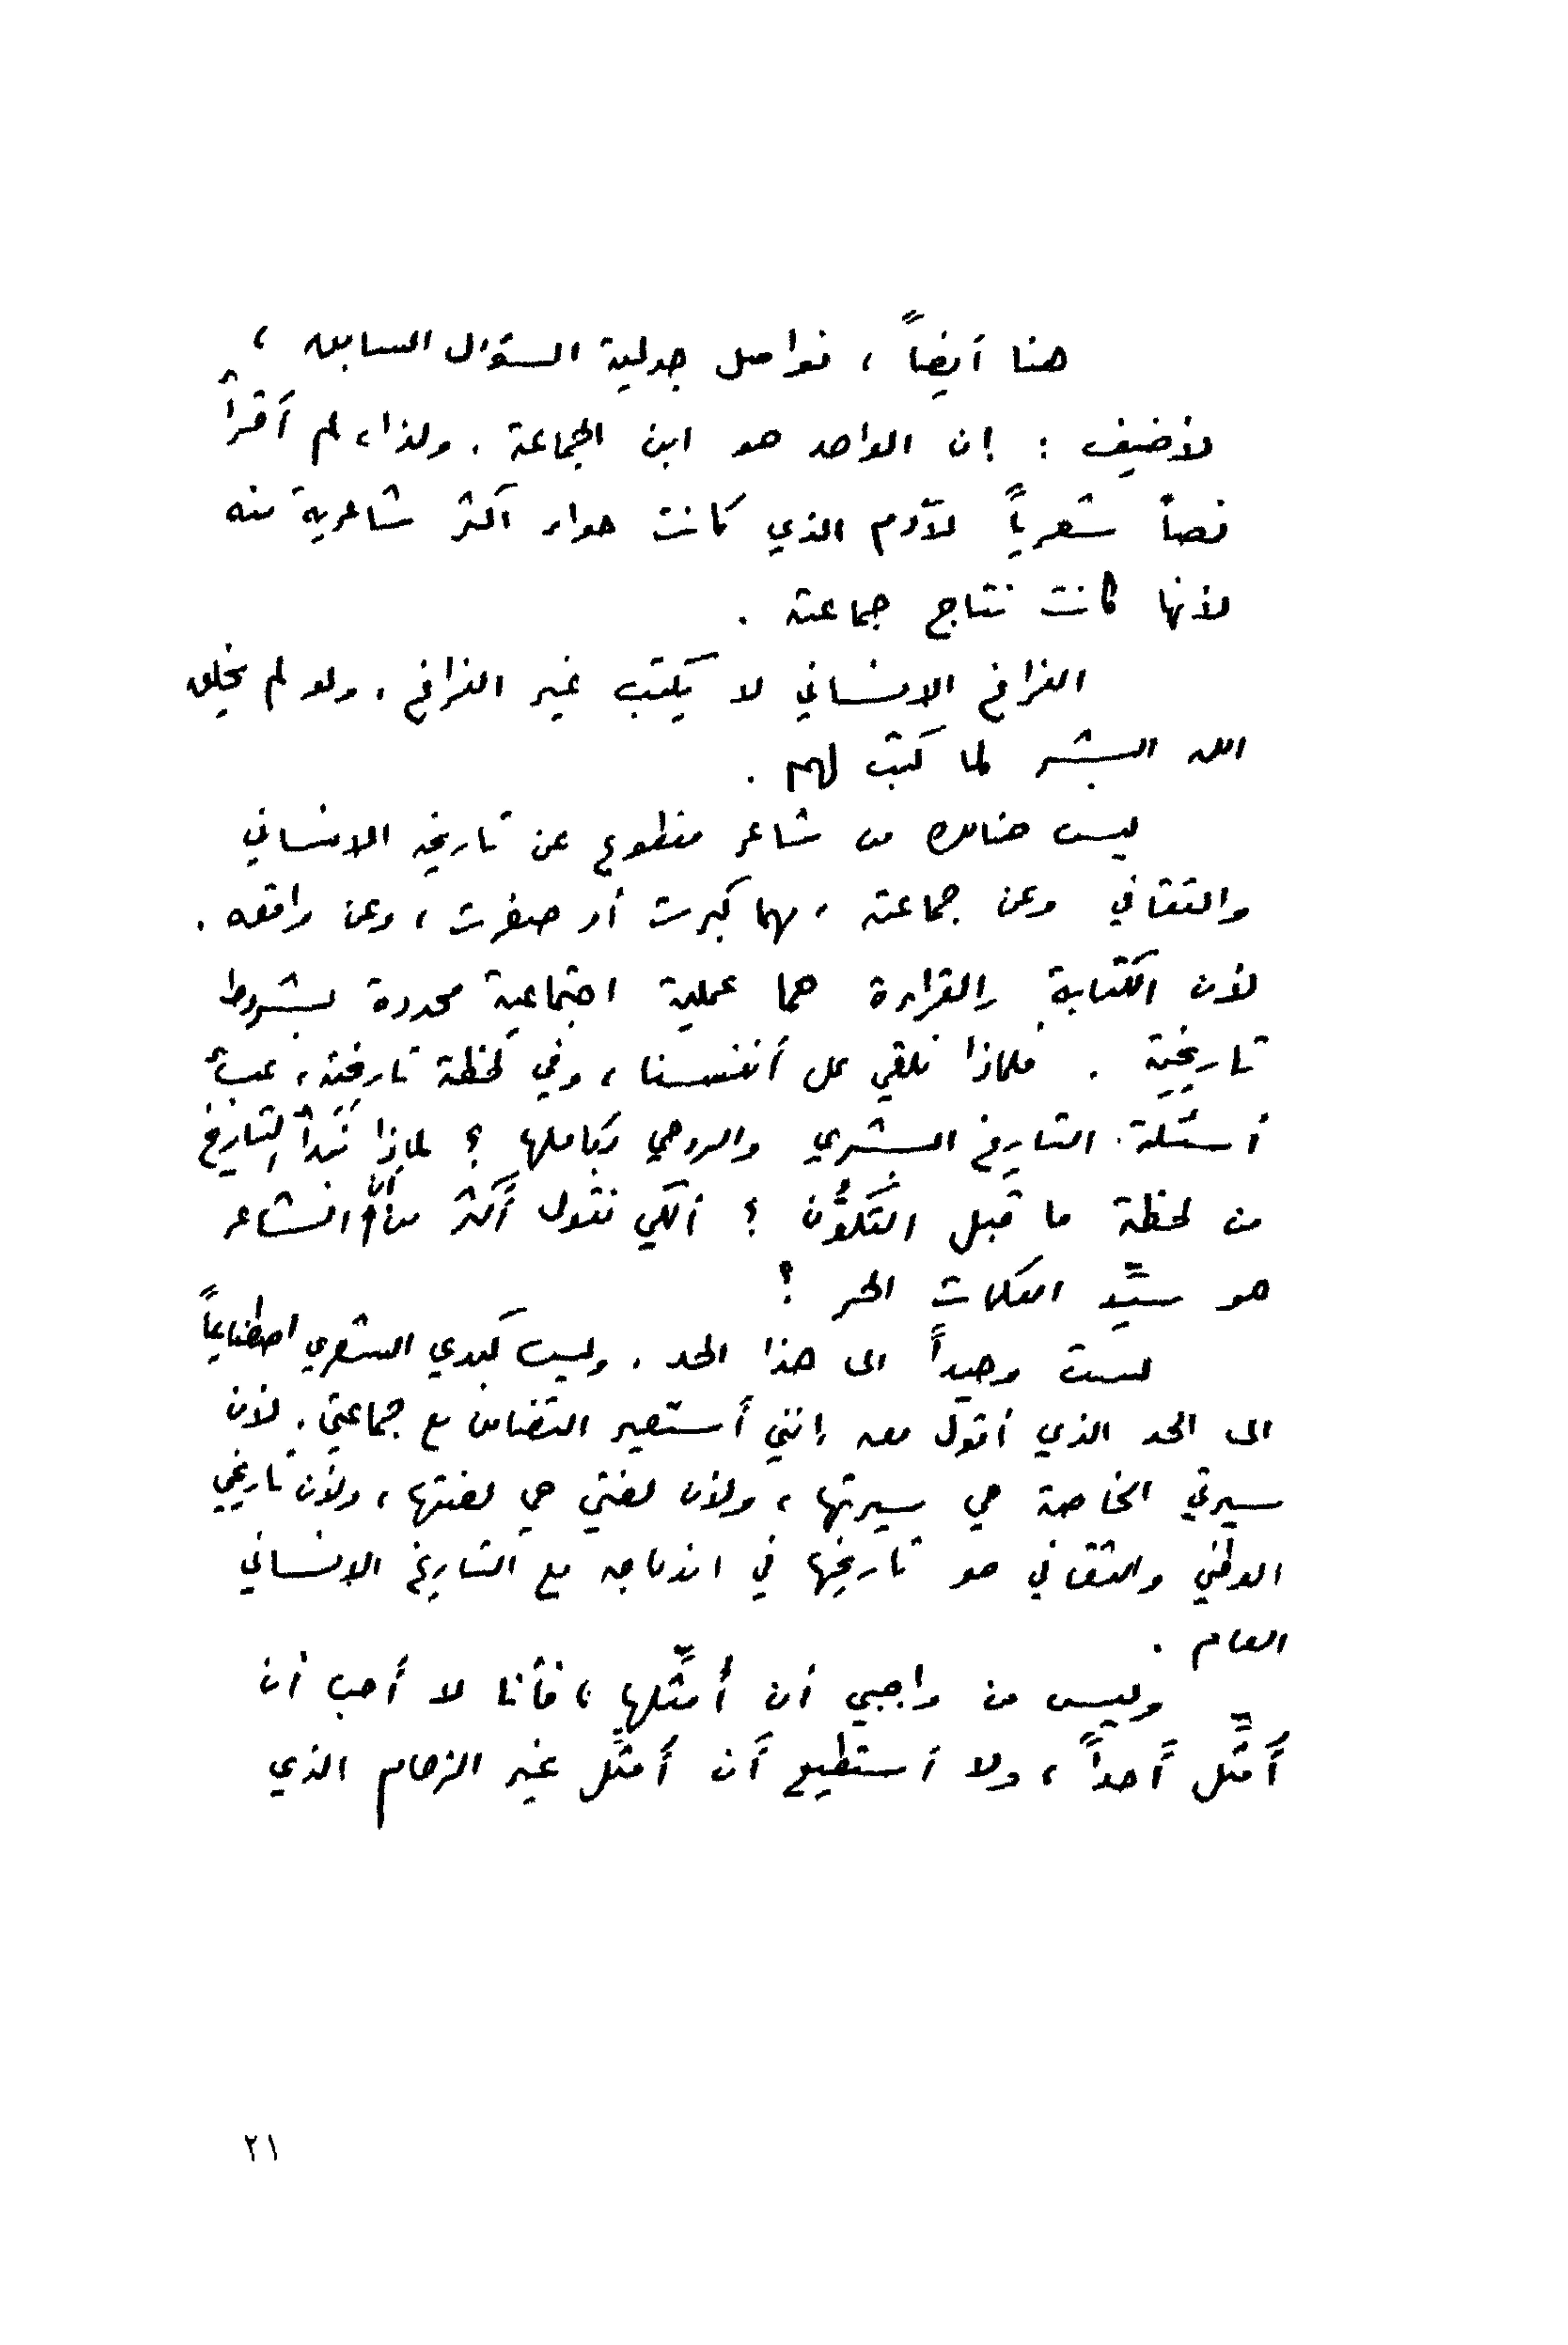 هنا أيضاً ، نواصل جدلية السؤال السابق ،
لأضيف : إن الواحد هو ابن الجماعة . ولذا، لم أقرأْ
نصاً شعرياً لآدم الذي كانت حواء أكثر شاعرية منه
لأنها كانت نتاج جماعته .
الفراغ الإنساني لا يكتب غير الفراغ . ولو لم يخلق
الله البشر لما كتب لهم .
ليس هنالك من شاعر مقطوع عن تاريخه الانساني
والثقافي وعن جماعته ، مهما كبرت أو صغرت ، وعن واقعه .
لأن الكتابة والقراءة هما عملية اجتماعية محددة بشروط
تاريخية . فلماذا نلقي على أنفسنا ، وفي لحظة تاريخية ، عبء
أسئلة التاريخ البشري والروحي بكاملها ؟ لماذا نَبدأ التاريخ
من لحظة ما قبل التَكوُّن ؟ ألكي نقول أَكثر من أنَّ الشاعر
هو سيِّد الكلمات الحر ؟
لست وحيداً الى هذا الحد . وليس كبدي الشعري اصطناعياً
الى الحد الذي أقول معه إنني أستعير التضامن مع جماعتي . لأن
سيرتي الخاصة هي سيرتها ، ولأن لغتي هي لغتها ، ولأن تاريخي
الوطني والثقافي هو تاريخها في اندماجه مع التاريخ الإنساني
العام .
وليس من واجبي أن أُمثِّلها ، فأنا لا أحب أن
أُمثِّل أَحداً ، ولا أستطيع أَن أُمثِّل غير الزحام الذي
٢١